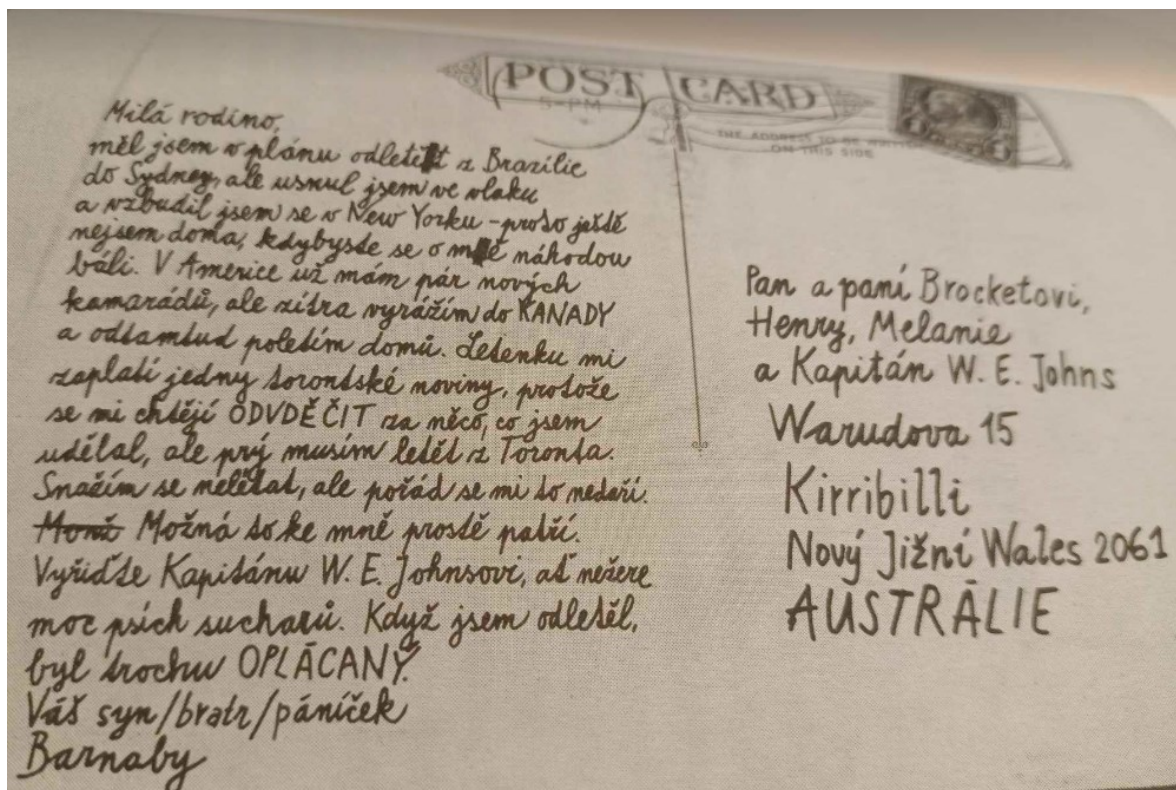 POST CARD
5-PM
THE ADDRESS TO BE
ON THIS SIDE
Milá rodino,
měl jsem v plánu odletět z Brazílie
do Sydney, ale usnul jsem ve vlaku
a vzbudil jsem se v New Yorku - proto ještě
nejsem doma, kdybyste se o mě náhodou
báli. V Americe už mám pár nových
kamarádů, ale zítra vyrážím do KANADY
a odtamtud poletím domů. Letenku mi
zaplatí jedny torontské noviny, protože
se mi chtějí ODVDĚČIT za něco, co jsem
udělal, ale prý musím letět z Toronta.
Snažím se nelétat, ale pořád se mi to nedaří.
Monž Možná to ke mně prostě patří.
Vyřiďte Kapitánu W. E. Johnsovi, ať nežere
moc psích sucharů. Když jsem odletěl,
byl trochu OPLÁCANÝ.
Váš syn/bratr/páníček
Barnaby
Pan a paní Brocketovi,
Henry, Melanie
a Kapitán W. E. Johns
Warudova 15
Kirribilli
Nový Jižní Wales 2061
AUSTRÁLIE